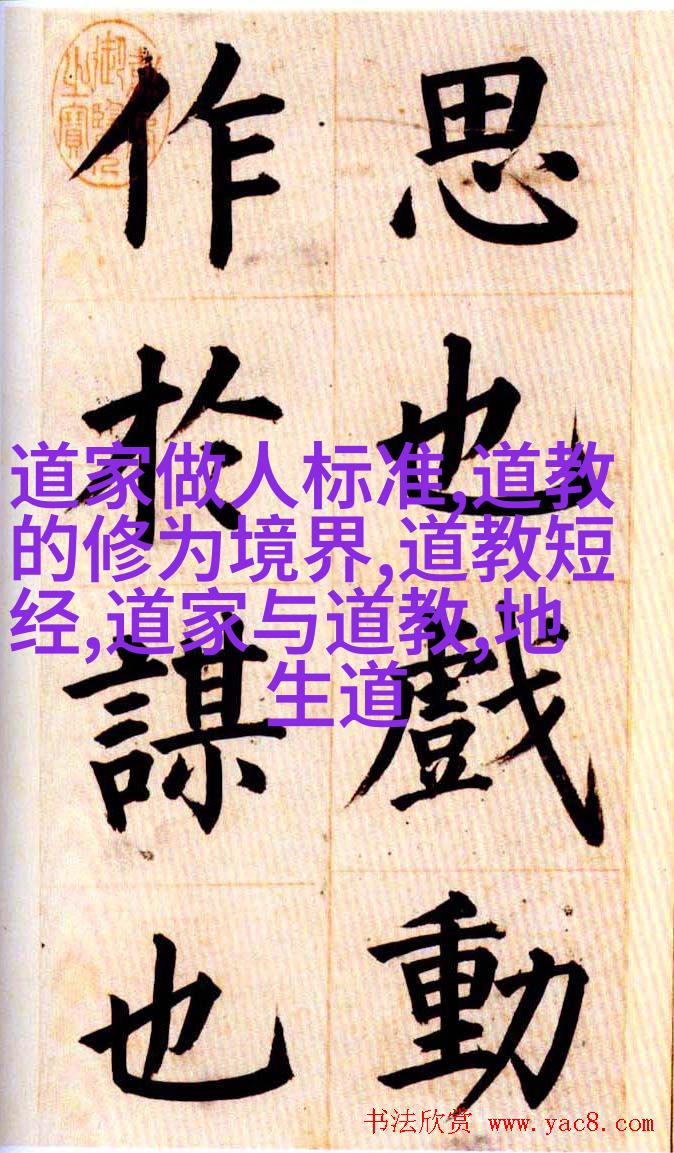 思也戲動
作於謀也
道家做人标准,道教
的修为境界,道教短
经,道家与道教,地
生道
书法欣赏 www.yac8.com